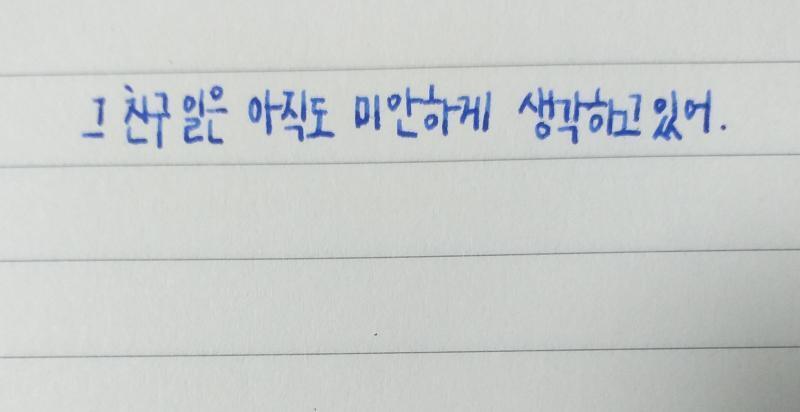 그 친구 일은 아직도 미안하게 생각하고 있어.